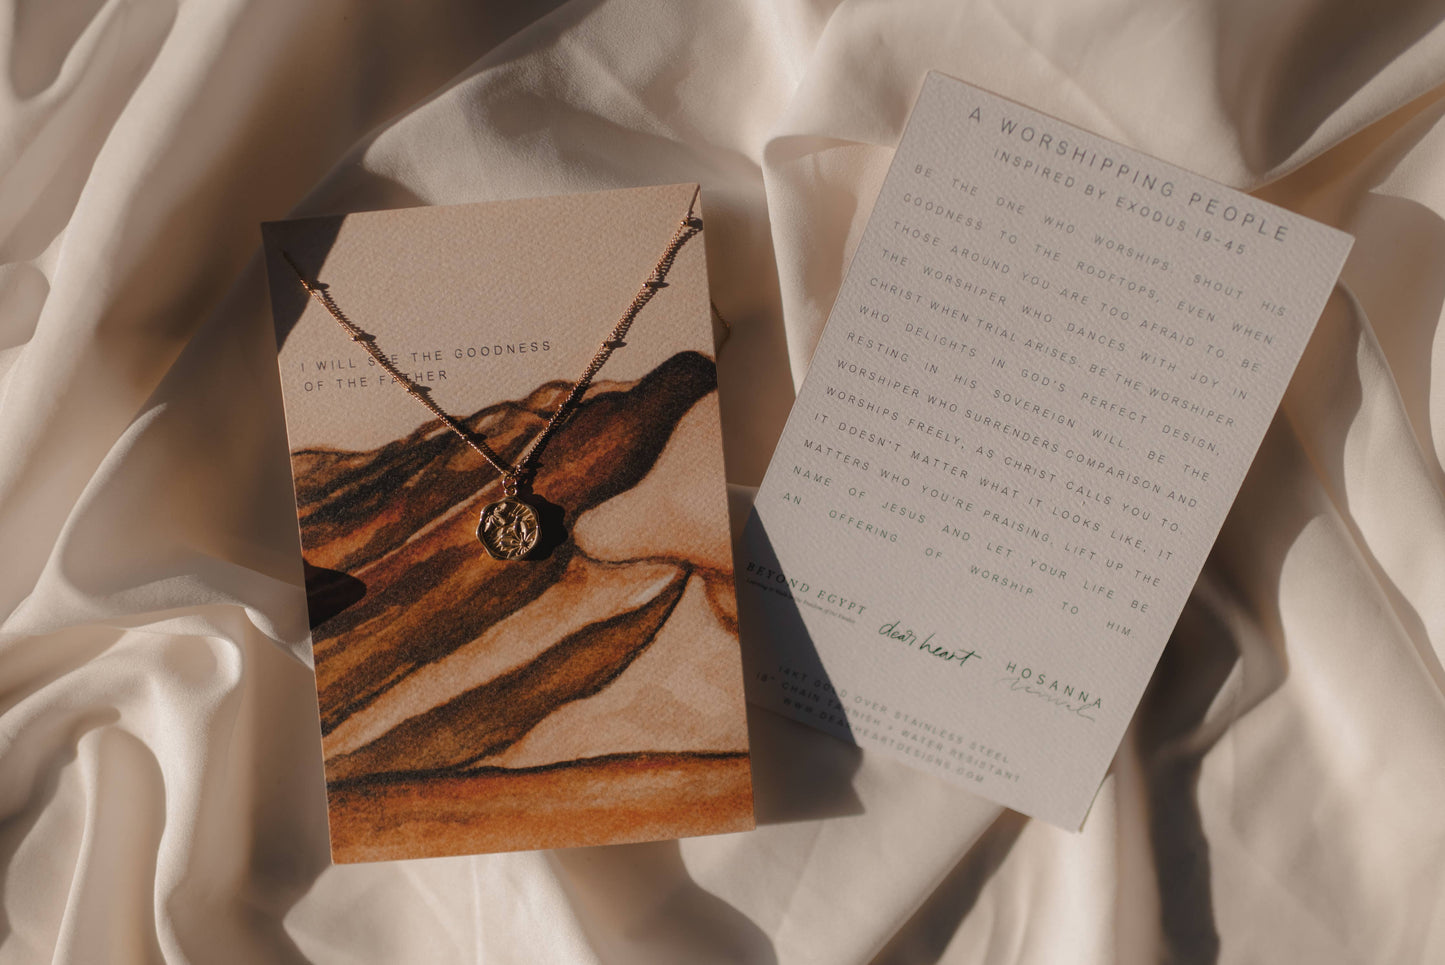 I WILL SEE THE GOODNESS
OF THE FATHER
A WORSHIPPING PEOPLE
INSPIRED BY EXODUS 19-45
BE THE ONE WHO WORSHIPS, SHOUT HIS
GOODNESS TO THE ROOFTOPS, EVEN WHEN
THOSE AROUND YOU ARE TOO AFRAID TO. BE
THE WORSHIPER WHO DANCES WITH JOY IN
CHRIST WHEN TRIAL ARISES. BE THE WORSHIPER
WHO DELIGHTS IN GOD'S PERFECT DESIGN,
RESTING IN HIS SOVEREIGN WILL. BE THE
WORSHIPER WHO SURRENDERS COMPARISON AND
WORSHIPS FREELY, AS CHRIST CALLS YOU TO.
IT DOESN'T MATTER WHAT IT LOOKS LIKE, IT
MATTERS WHO YOU'RE PRAISING. LIFT UP THE
NAME OF JESUS AND LET YOUR LIFE BE
AN OFFERING OF WORSHIP TO HIM.
BEYOND EGYPT
dear heart
HOSANNA
revival
14KT GOLD OVER STAINLESS STEEL
18" CHAIN TARNISH + WATER RESISTANT
WWW.DEARHEARTDESIGNS.COM